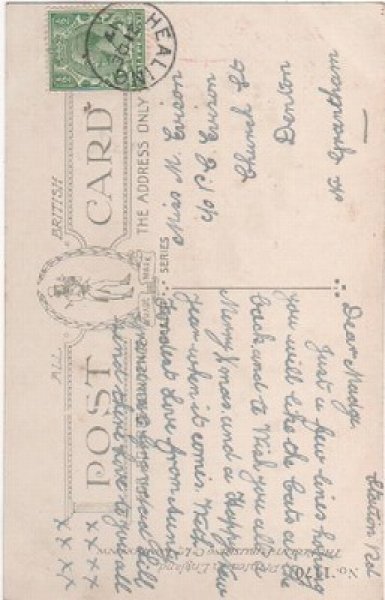 ALL BRITISH
POST CARD
THE ADDRESS ONLY
SERIES
TRADE MARK
HEALING
Miss M. Evison
c/o E. J. Evison
Church St
Denton
Nr Grantham
Staxton Rd
Dear Madge
Just a few lines hoping
you will like the Cats on the
back and to Wish you all a
Merry Xmas and a Happy New
Year when it comes. With
fondest love from Aunt
and Will
send their love to you all
x x x x
x x x x
No. 1170
Printed in England